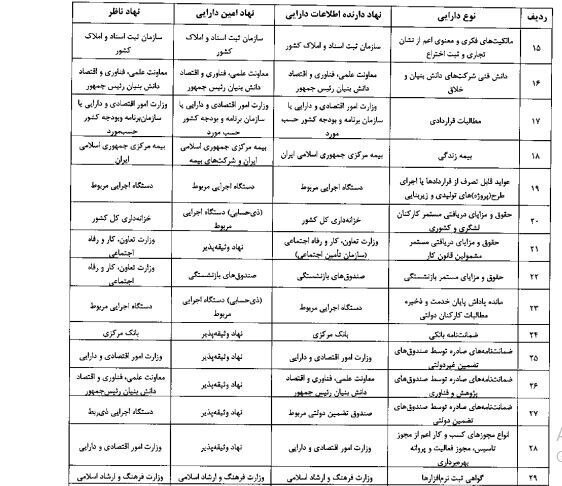 ردیف نوع دارایی نهاد دارنده اطلاعات دارایی نهاد امین دارایی نهاد ناظر
۱۵ مالکیت‌های فکری و معنوی اعم از نشان تجاری و ثبت اختراع سازمان ثبت اسناد و املاک کشور سازمان ثبت اسناد و املاک کشور سازمان ثبت اسناد و املاک کشور
۱۶ دانش فنی شرکت‌های دانش بنیان و خلاق معاونت علمی، فناوری و اقتصاد دانش بنیان رئیس جمهور معاونت علمی، فناوری و اقتصاد دانش بنیان رئیس جمهور معاونت علمی، فناوری و اقتصاد دانش بنیان رئیس جمهور
۱۷ مطالبات قراردادی وزارت امور اقتصادی و دارایی یا سازمان برنامه و بودجه کشور حسب مورد وزارت امور اقتصادی و دارایی یا سازمان برنامه و بودجه کشور حسب مورد وزارت امور اقتصادی و دارایی یا سازمان‌برنامه وبودجه کشور حسب‌مورد
۱۸ بیمه زندگی بیمه مرکزی جمهوری اسلامی ایران بیمه مرکزی جمهوری اسلامی ایران و شرکت‌های بیمه بیمه مرکزی جمهوری اسلامی ایران
۱۹ عواید قابل تصرف از قراردادها یا اجرای طرح(پروژه)های تولیدی و زیربنایی دستگاه اجرایی مربوط دستگاه اجرایی مربوط دستگاه اجرایی مربوط
۲۰ حقوق و مزایای دریافتی مستمر کارکنان لشگری و کشوری دستگاه اجرایی مربوط (ذی‌حسابی) دستگاه اجرایی مربوط خزانه‌داری کل کشور
۲۱ حقوق و مزایای دریافتی مستمر مشمولین قانون کار وزارت تعاون، کار و رفاه اجتماعی (سازمان تأمین اجتماعی) نهاد وثیقه‌پذیر وزارت تعاون، کار و رفاه اجتماعی
۲۲ حقوق و مزایای مستمر بازنشستگی صندوق‌های بازنشستگی صندوق‌های بازنشستگی وزارت تعاون، کار و رفاه اجتماعی
۲۳ مانده پاداش پایان خدمت و ذخیره مطالبات کارکنان دولتی دستگاه اجرایی مربوط (ذی‌حسابی) دستگاه اجرایی مربوط دستگاه اجرایی مربوط
۲۴ ضمانت‌نامه بانکی بانک مرکزی نهاد وثیقه‌پذیر بانک مرکزی
۲۵ ضمانت‌نامه‌های صادره توسط صندوق‌های تضمین غیردولتی وزارت امور اقتصادی و دارایی نهاد وثیقه‌پذیر وزارت امور اقتصادی و دارایی
۲۶ ضمانت‌نامه‌های صادره توسط صندوق‌های پژوهش و فناوری معاونت علمی، فناوری و اقتصاد دانش بنیان رئیس جمهور نهاد وثیقه‌پذیر معاونت علمی، فناوری و اقتصاد دانش بنیان رئیس جمهور
۲۷ ضمانت‌نامه‌های صادره توسط صندوق‌های تضمین دولتی صندوق تضمین دولتی مربوط نهاد وثیقه‌پذیر دستگاه اجرایی ذی‌ربط
۲۸ انواع مجوزهای کسب و کار اعم از مجوز تاسیس، مجوز فعالیت و پروانه بهره‌برداری وزارت امور اقتصادی و دارایی نهاد وثیقه‌پذیر وزارت امور اقتصادی و دارایی
۲۹ گواهی ثبت نرم‌افزارها وزارت فرهنگ و ارشاد اسلامی وزارت فرهنگ و ارشاد اسلامی وزارت فرهنگ و ارشاد اسلامی